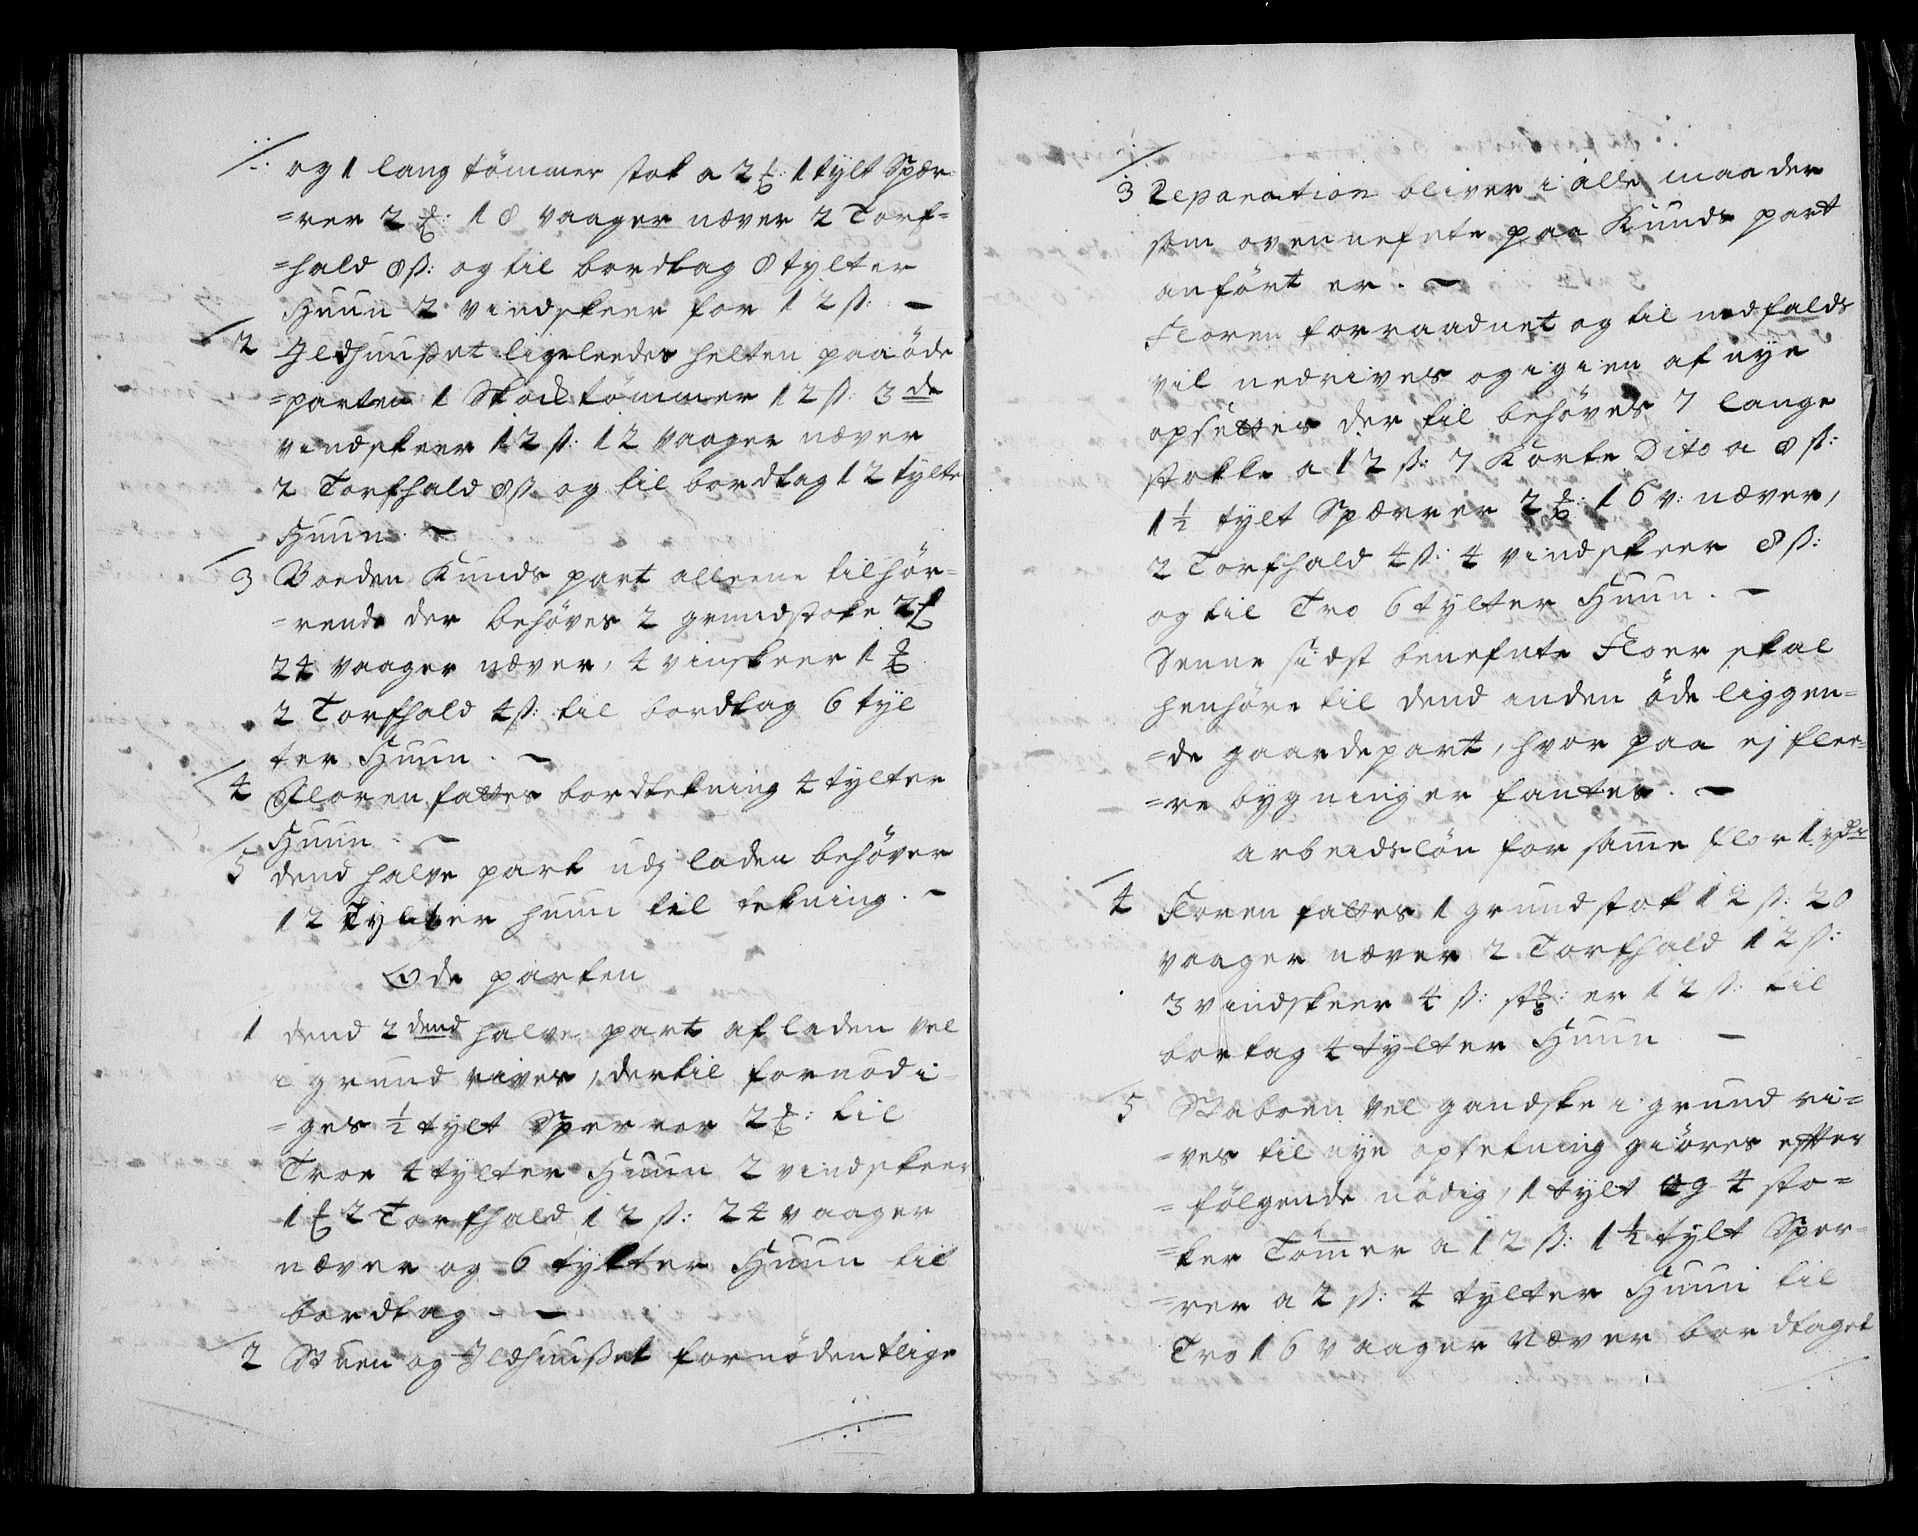 og 1 lang tömmer stok a 2 ℔: 1 tylt Spær-
=rer 2 ℔: 18 vaager næver 2 Torf=
=hald 8 ß: og til bordtag 8 tylter
Huun 2 vindskeer for 12 ß: -
2 Jldhuußet ligeleedes helten paa öde
=parten 1 Stok tömmer 12 ß: 3 de
vindskeer 12 ß: 12 vaager næver
2 Torfhald 8 ß og til bordtag 12 tylte
Huun. -
3 Boeden Kunds part alleene tilhör-
=rende der behöves 2 grundstoke 2 ℔
24 vaager næver, 4 vinskeer 1 ℔
2 Torfhald 4 ß: til bordtag 6 tyl
ter Huun. -
4 Floren fattes bordtekning 4 tylter
Huun. -
5 dend halve part udj laden behöver
12 Tylter huun til tekning. -
Öde parten
1 dend 2 dend halve part af laden vel
i grund rives, dertil fornödi-
=ges ½ tylt Sperrer 2 ℔: til
Troe 4 tylter Huun 2 vindskeer
1 ℔ 2 Torfhald 12 ß: 24 vaager
næver og 6 tylter Huun til
bordtag - -
2 Stuen og Jldhuußet fornödentlige
3 Reparation bliver i alle maader
som ovennefnte paa Kunds part
anfört er. -
Floren forraadnet og til nedfalds
vil nedrives og igien af nye
opsettes der til behöves 7 lange
stokke a 12 ß: 7 Korte Dito a 8 ß:
1½ tylt Spærrer 2 ℔: 16 v: næver,
2 Torfhald 4 ß: 4 vindskeer 8 ß:
og til Tro 6 tylter Huun. -
Denne sidst benefnte Floer skal
henhöre til dend anden öde liggen=
=de gaardepart, hvor paa ej flee=
=re bygninger fantes. -
arbeidslön for samme flor 1 rdr
4 Floren fattes 1 grundstok 12 ß: 20
vaager næver 2 Torfhald 12 ß:
3 vindskeer 4 ß: st℔: er 12 ß: til
bortag 4 tylter Huun -
5 Staboen vel gandske i grund ri=
=ves til nye opsetning giöres efter
=fölgende nödig, 1 tylt og 4 sto=
=ker Tömer a 12 ß: 1½ tylt Sper-
=rer a 2 ß: 4 tylter Huun til
Tro 16 vaager næver bordtaget